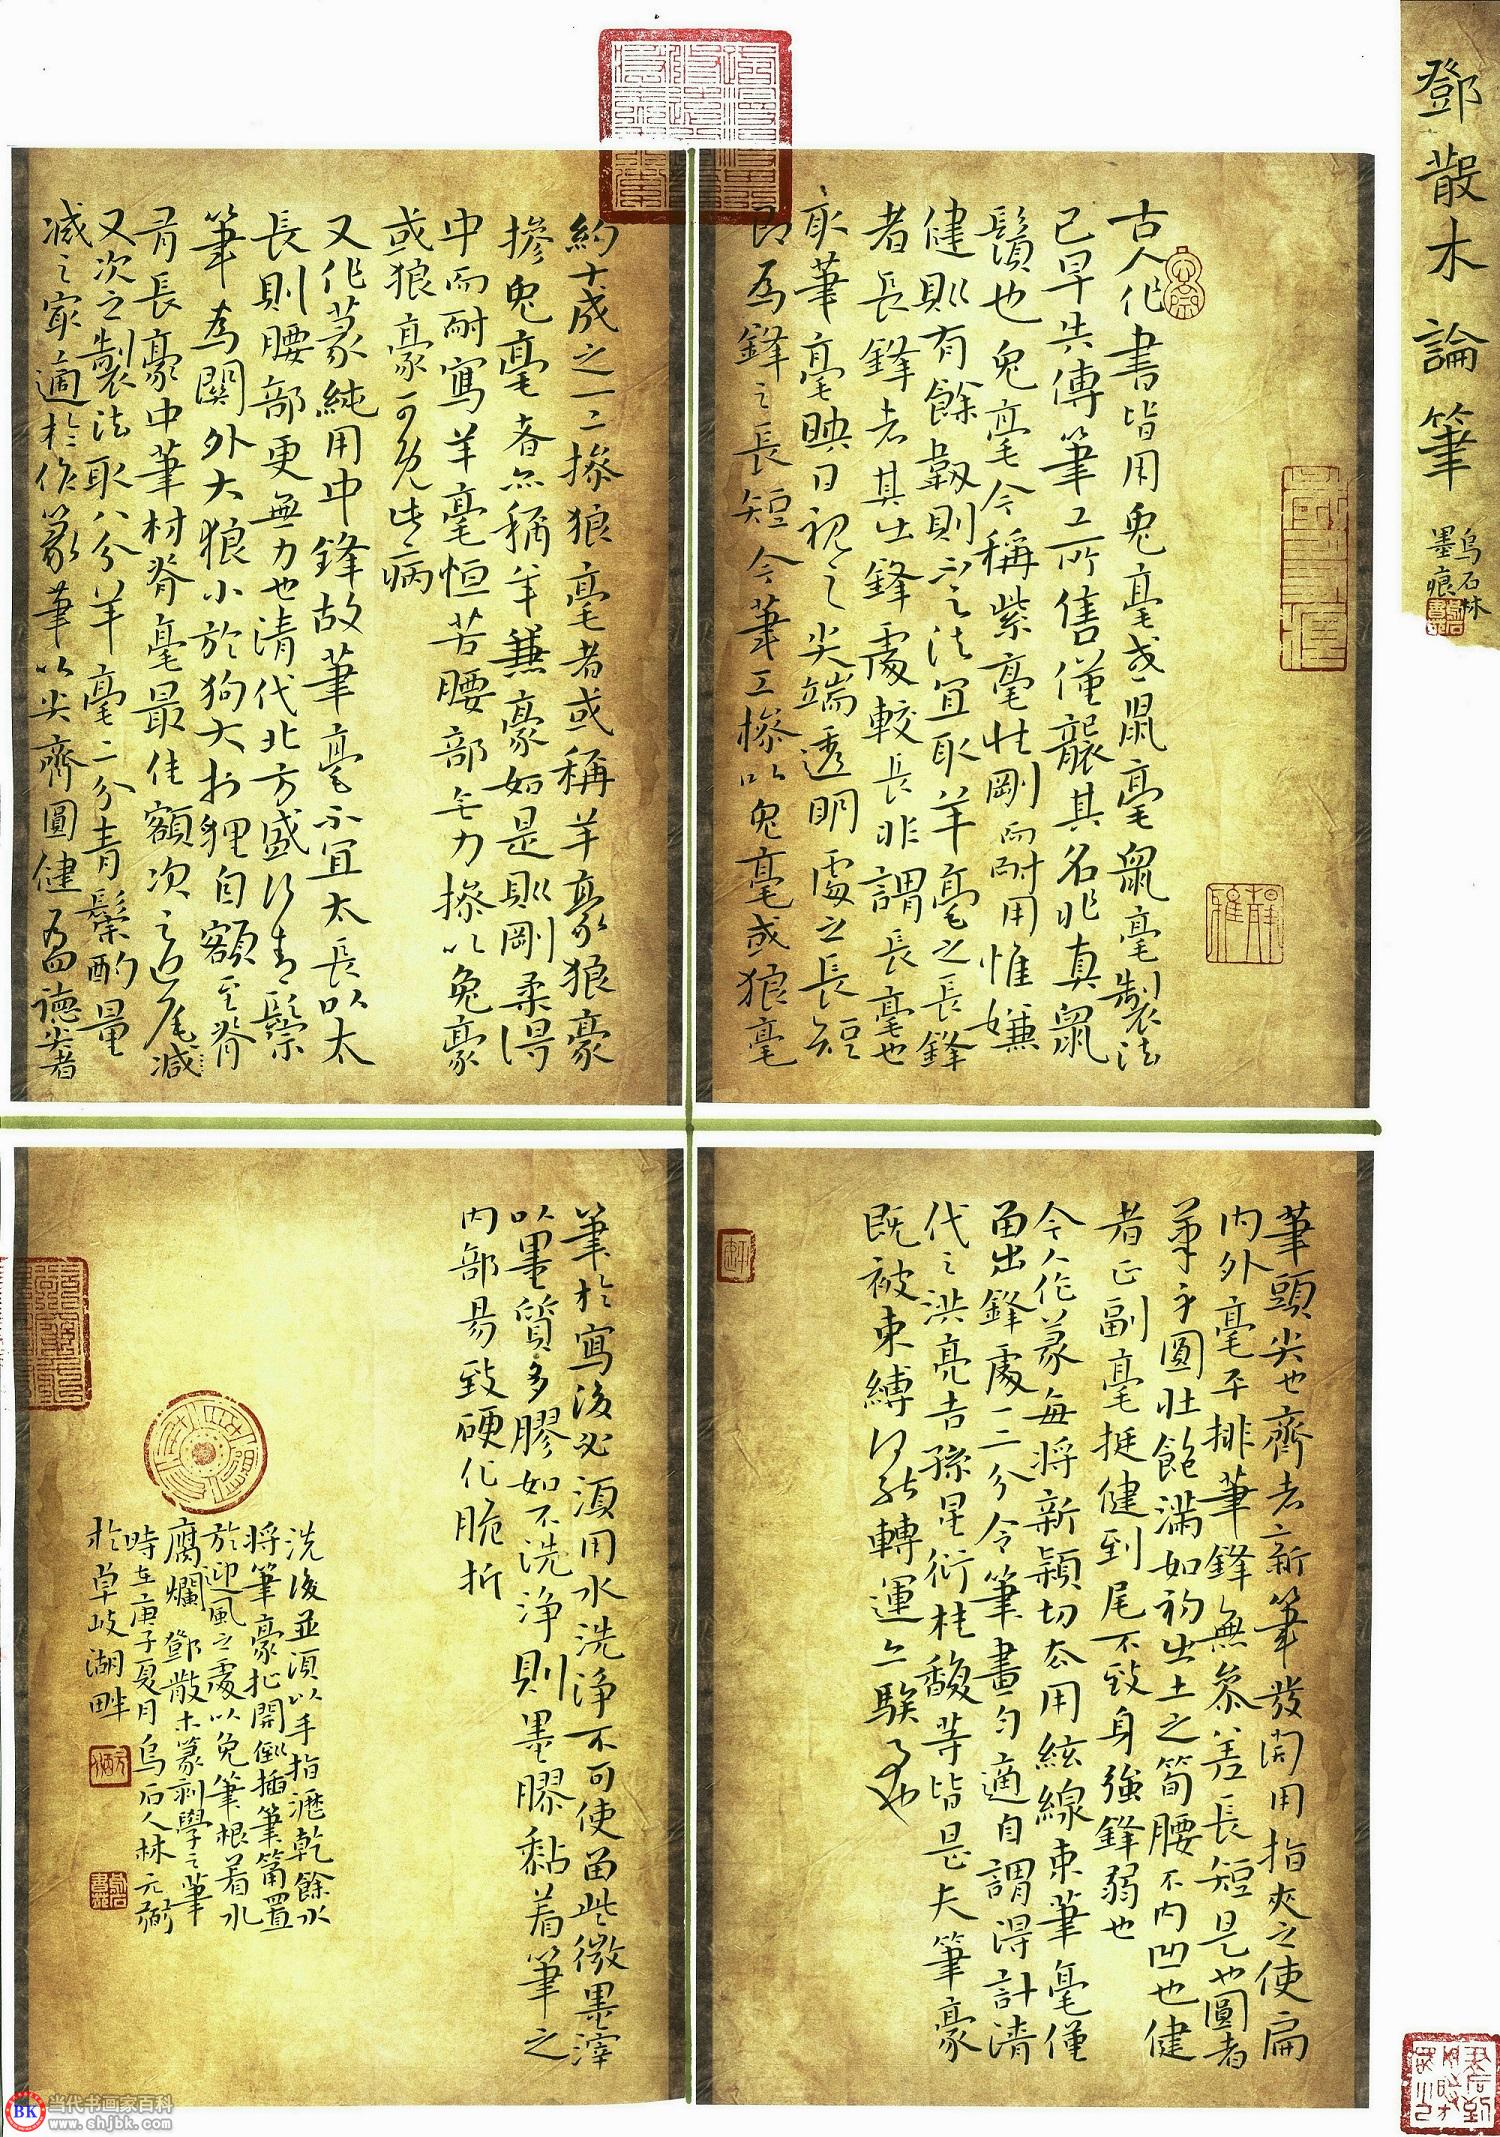 鄧散木論筆
烏石林
墨痕
古人作書皆用兔毫或鼠毫鼠毫製法
已早失傳筆工所售僅襲其名非真鼠
鬚也兔毫今稱紫毫性剛而耐用惟嫌
健則有餘韌則不足法宜取羊毫之長鋒
者長鋒者其出鋒處較長非謂長毫也
取筆毫映日視之尖端透明處之長短
即為鋒之長短今筆工摻以兔毫或狼毫
約十成之一二摻狼毫者或稱羊豪狼豪
摻兔毫者亦稱羊兼豪如是則剛柔得
中而耐寫羊毫恒苦腰部無力摻以兔豪
或狼豪可免此病
又作篆純用中鋒故筆毫不宜太長以太
長則腰部更無力也清代北方盛行青鬃
筆為關外大狼小於狗大於狸自額至脊
有長豪中筆材脊毫最佳額次之近尾減
又次之製法取八分羊毫二分青鬃酌量
減之最適於作篆筆以尖齊圓健為四德尖者
筆頭尖也齊者新筆發開用指夾之使扁
內外毫平排筆鋒無參差長短是也圓者
筆身圓壯飽滿如初出土之筍腰不內凹也健
者正副毫挺健到尾不致身強鋒弱也
今人作篆每將新穎切去用絃線束筆毫僅
留出鋒處一二分令筆畫勻適自謂得計清
代之洪亮吉孫星衍桂馥等皆是夫筆豪
既被束縛何能轉運亦騃事也
筆於寫後必須用水洗淨不可使留些微墨滓
以墨質多膠如不洗淨則墨膠黏着筆之
內部易致硬化脆折
洗後並須以手指瀝乾餘水
將筆豪扯開倒插筆筩置
於迎風之處以免筆根着水
腐爛 鄧散木篆刻學之筆
時在庚子夏月烏石人林元弼
於卓岐湖畔
當代书画家百科
www.shjbk.com
BK